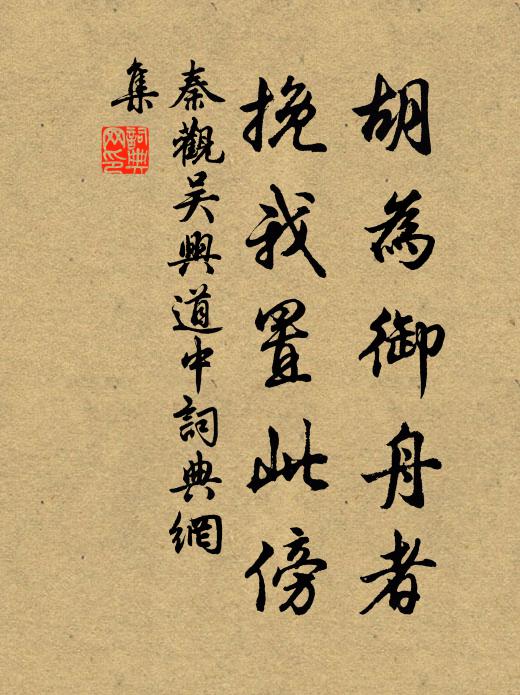 胡為御舟者
挽我置此傍
秦觀吳興道中詞典網
集
詞典
网印